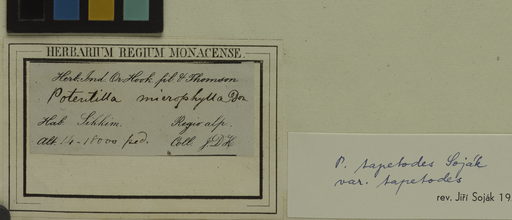 HERBARIUM REGIUM MONACENSE.
Herb. Ind. Or. Hook. fil. & Thomson
Potentilla microphylla Don
Hab. Sikkim. Regio alp.
Alt. 14-18000 ped. Coll. J.D.H.
P. tapetodes Soják
var. tapetodes
rev. Jiří Soják 19